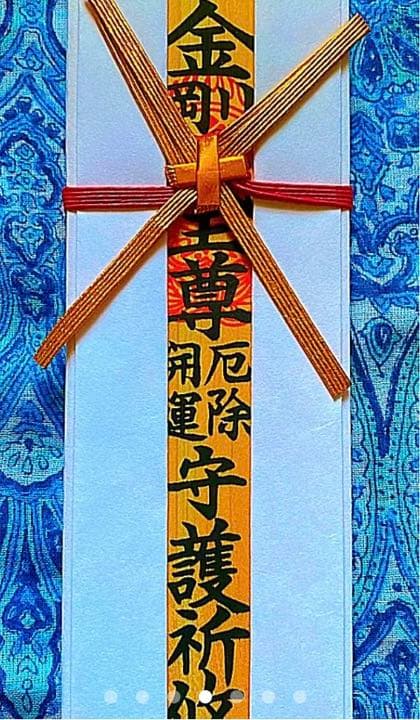 金剛
尊
厄除
開運
守護祈